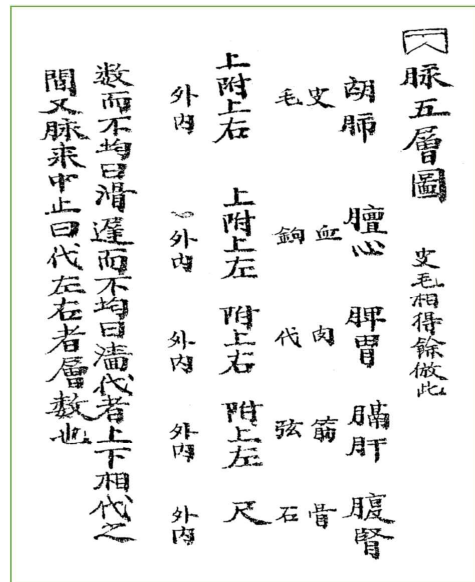 脉五層圖 皮毛相得餘倣此
胡肺 膻心 脾胃 膈肝 腹腎
皮 血 肉 筋 骨
毛 鉤 代 弦 石
上附上右 上附上左 附上右 附上左 尺
外内 外内 外内 外内 外内
数而不均曰滑遲而不均曰濇代者上下相代之
間又脉来中止曰代左右者層数也